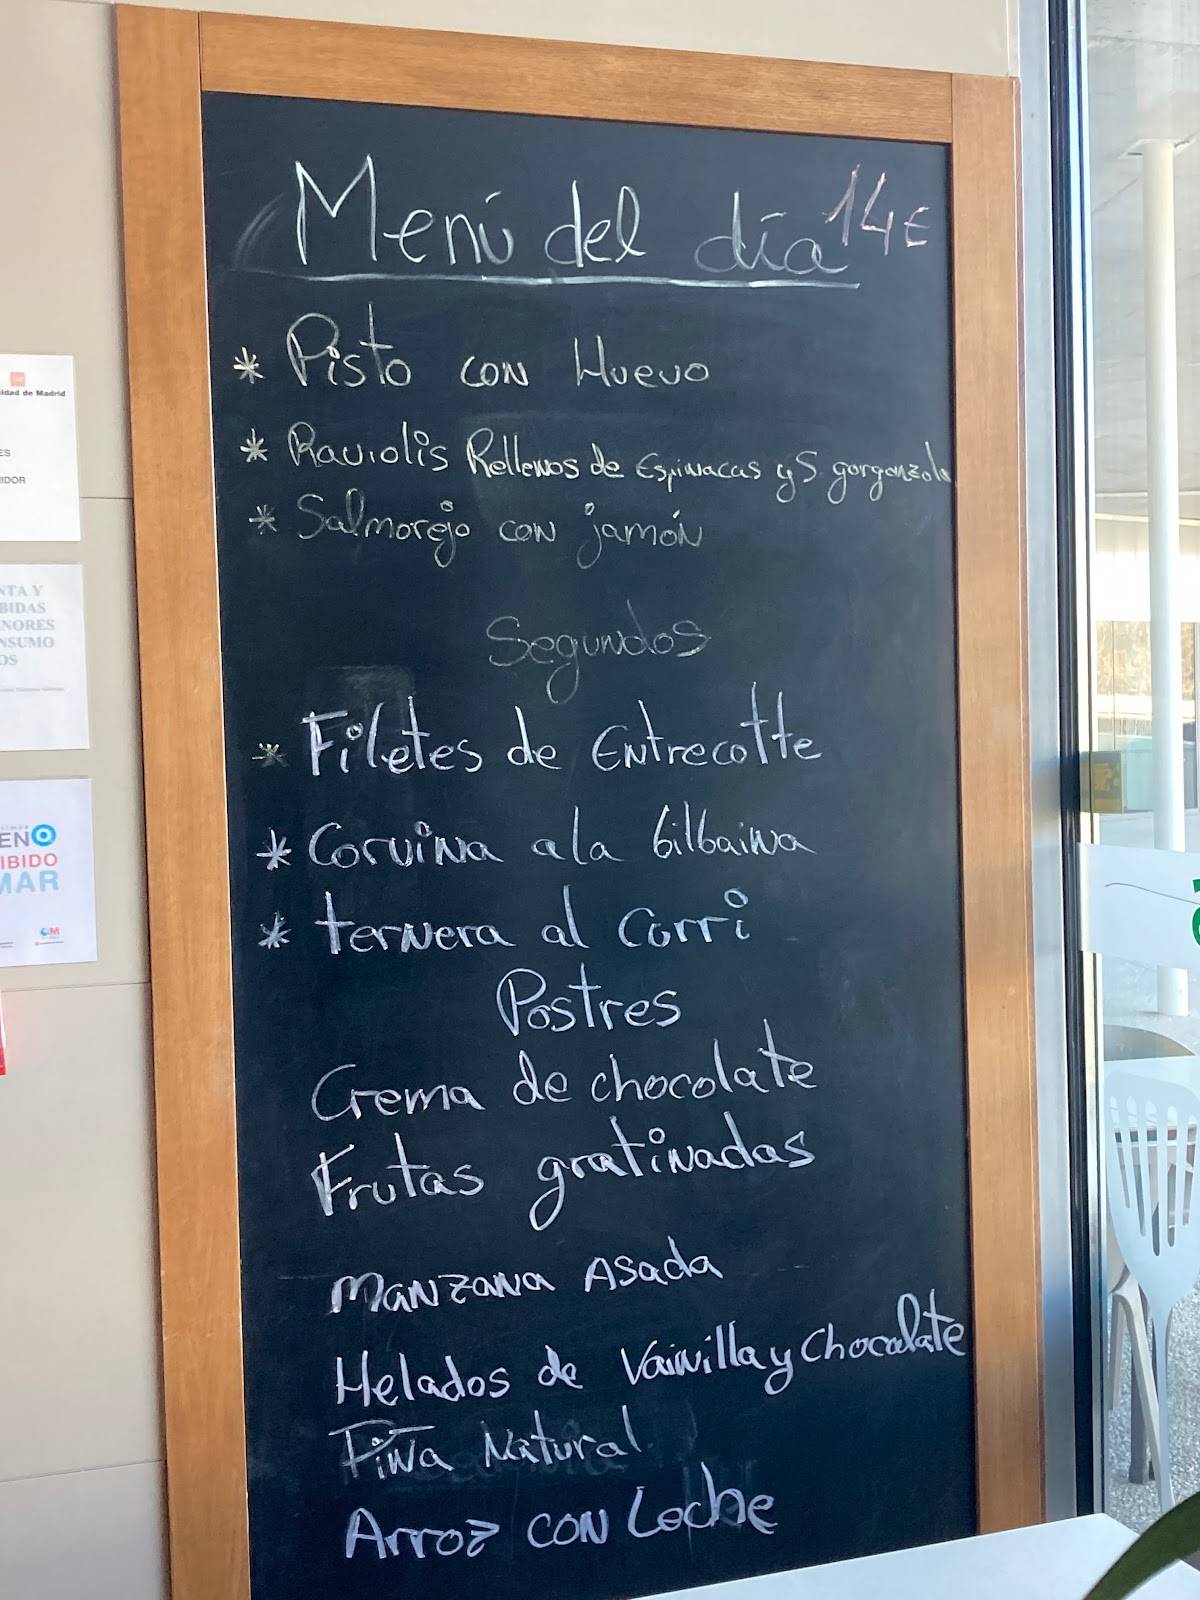 Menú del día 14€
* Pisto con Huevo
* Raviolis Rellenos de Espinacas y S. gorgonzola
* Salmorejo con jamón
Segundos
* Filetes de Entrecotte
* Corvina a la bilbaina
* ternera al Curri
Postres
Crema de chocolate
Frutas gratinadas
Manzana Asada
Helados de Vainilla y Chocolate
Piña Natural
Arroz con Leche
idad de Madrid
ES
IDOR
NTA Y
BIDAS
ENORES
NSUMO
OS
ENO
IBIDO
MAR